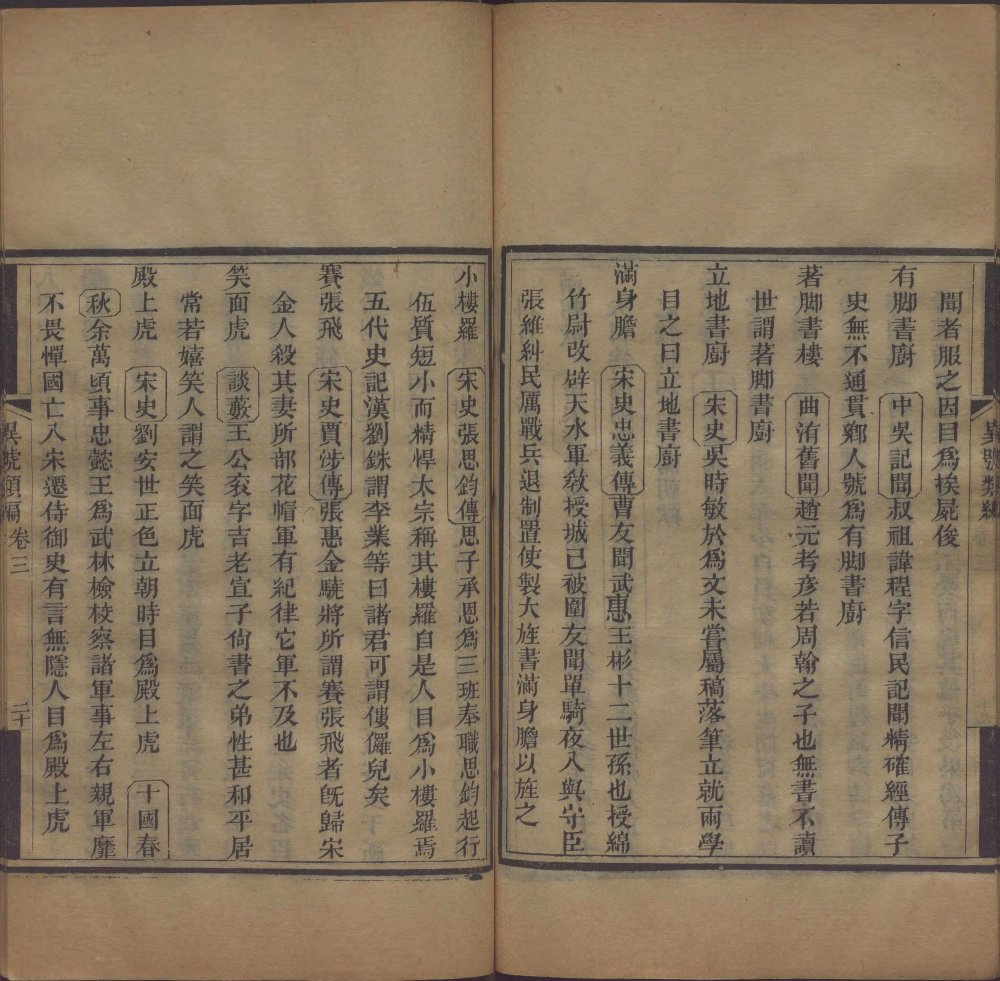 聞者服之因目爲挨屍俊
有脚書廚　中吳記聞叔祖諱程字信民記聞精確經傳子
史無不通貫鄉人號爲有脚書廚
著脚書樓　曲洧舊聞趙元考彥若周翰之子也無書不讀
世謂著脚書廚
立地書廚　宋史吳時敏於爲文未嘗屬稿落筆立就兩學
目之曰立地書廚
滿身膽　宋史忠義傳曹友聞武惠王彬十二世孫也授綿
竹尉改辟天水軍敎授城已被圍友聞單騎夜入與守臣
張維糾民厲戰兵退制置使製大旌書滿身膽以旌之
異號類編
小樓羅　宋史張思鈞傳思子承恩爲三班奉職思鈞起行
伍質短小而精悍太宗稱其樓羅自是人目爲小樓羅焉
五代史記漢劉銖謂李業等曰諸君可謂僂儸兒矣
賽張飛　宋史賈涉傳張惠金驍將所謂賽張飛者旣歸宋
金人殺其妻所部花帽軍有紀律它軍不及也
笑面虎　談藪王公袞字吉老宣子尙書之弟性甚和平居
常若嬉笑人謂之笑面虎
殿上虎　宋史劉安世正色立朝時目爲殿上虎　十國春
秋余萬頃事忠懿王爲武林檢校察諸軍事左右親軍靡
不畏憚國亡入宋遷侍御史有言無隱人目爲殿上虎
異號類編　卷三　二十